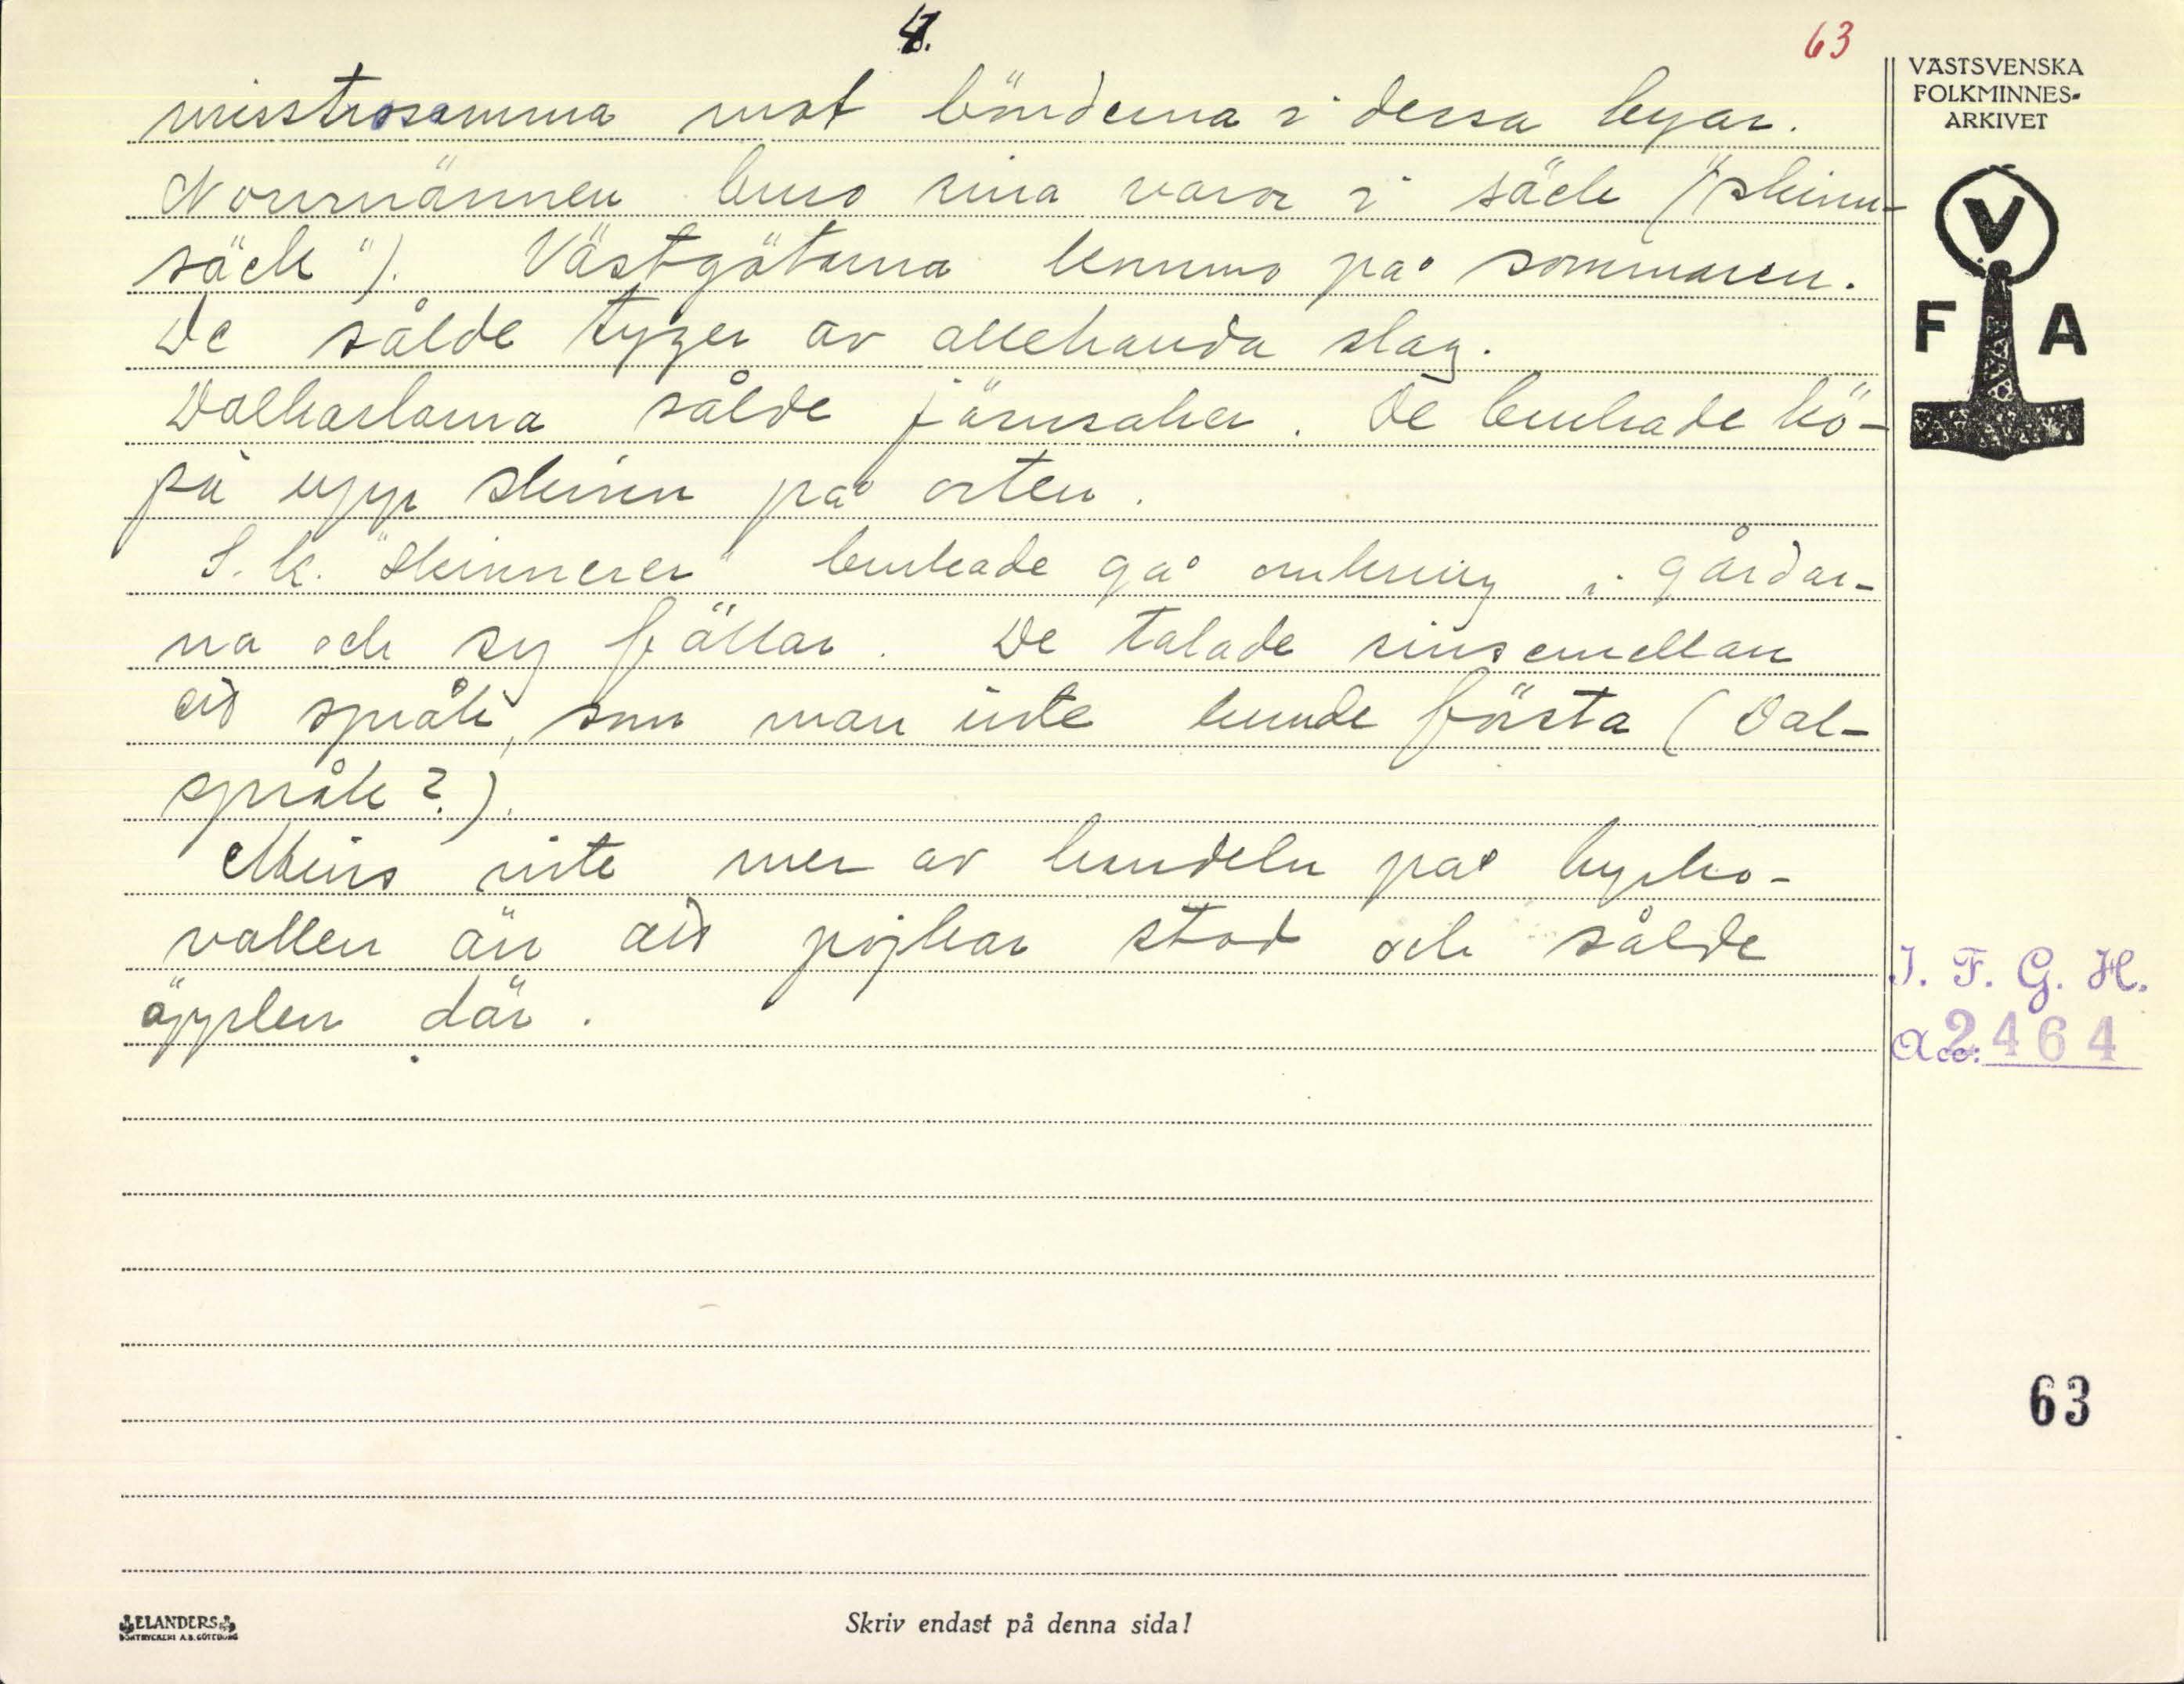 4.
63
misstrosamma mot bönderna i dessa byar.
Norrmännen buro sina varor i säck ("skinn-
säck"). Västgötarna kommo på sommaren.
De sålde tyger av allehanda slag.
Dalkarlarna sålde järnsaker. De brukade kö-
pa upp skinn på orten.
S.k. "skinnerer" brukade gå omkring i gårdar-
na och sy fällar. De talade sinsemellan
ett språk, som man inte kunde förstå (Dal-
språk?).
Minns inte mer av handeln på kyrko-
vallen än att pojkar stod och sålde
äpplen där.
VÄSTSVENSKA
FOLKMINNES-
ARKIVET
V
F A
I. F. G. H.
Acc: 2464
63
ELANDERS
BOKTRYCKERI A.B. GÖTEBORG
Skriv endast på denna sida!